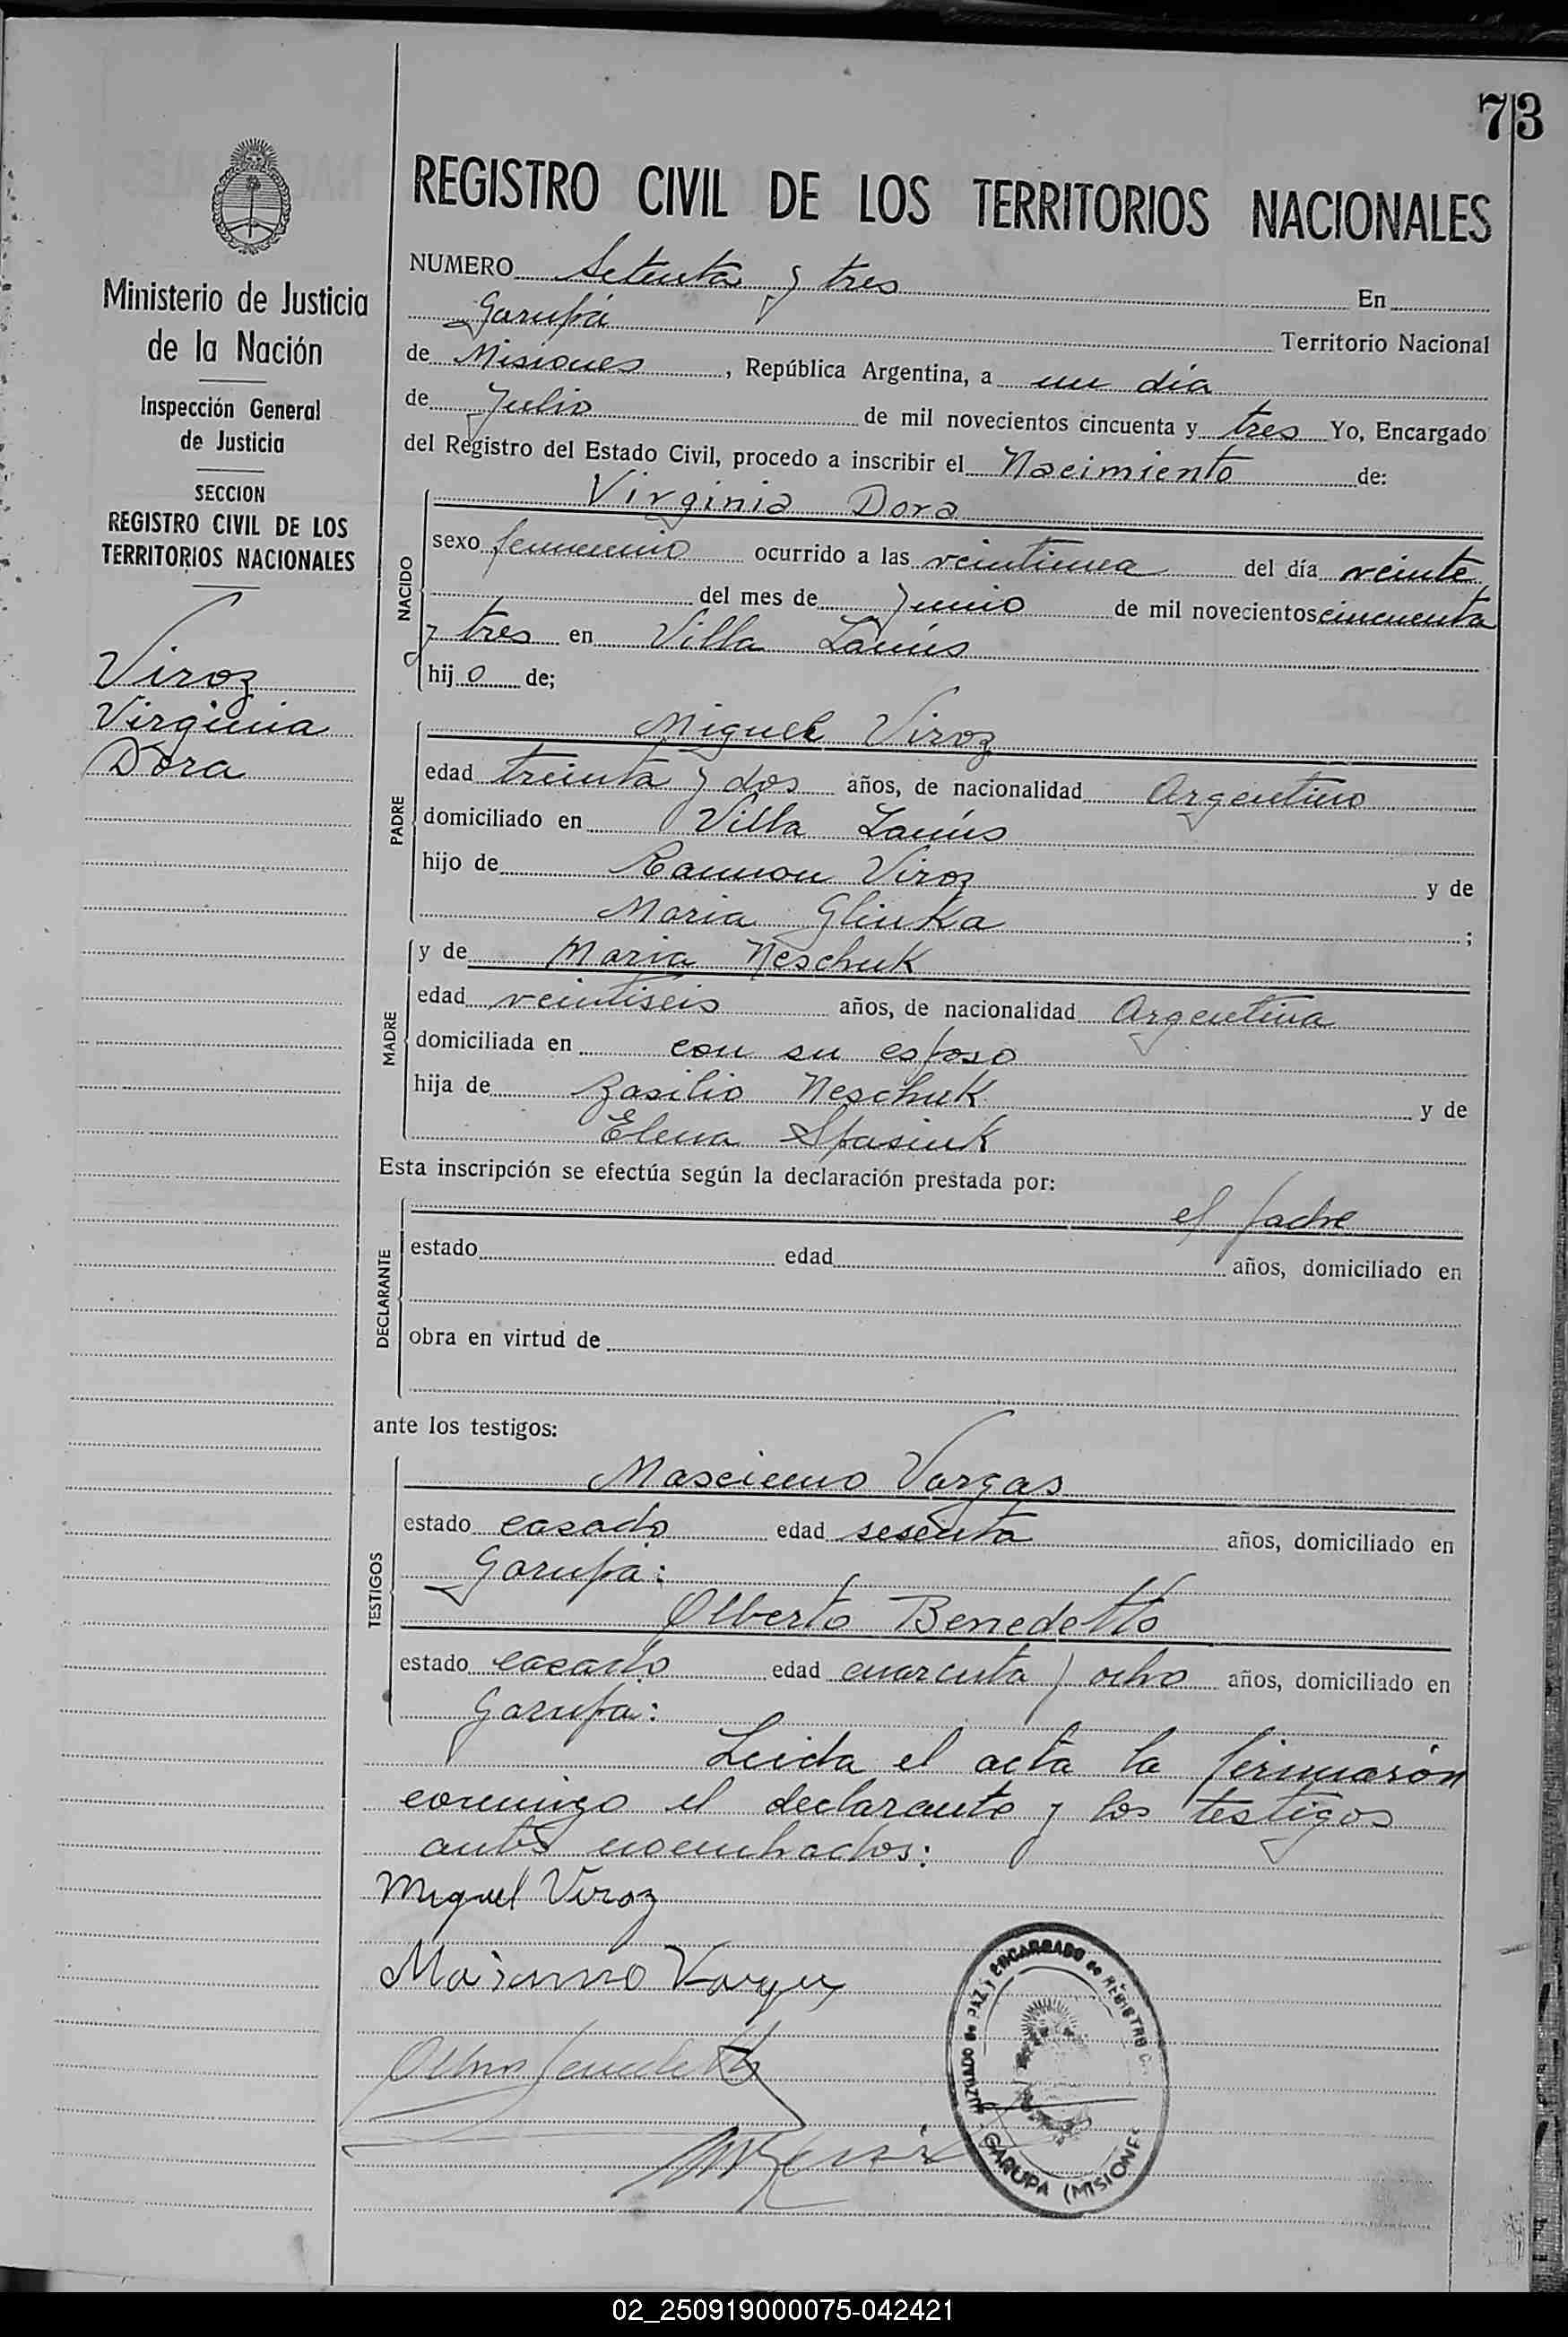 73
REGISTRO CIVIL DE LOS TERRITORIOS NACIONALES
Ministerio de Justicia
de la Nación
Inspección General
de Justicia
SECCION
REGISTRO CIVIL DE LOS
TERRITORIOS NACIONALES
Viroz
Virginia
Dora
NUMERO Setenta y tres En
Garupá Territorio Nacional
de Misiones, República Argentina, a un día
de Julio de mil novecientos cincuenta y tres Yo, Encargado
del Registro del Estado Civil, procedo a inscribir el Nacimiento de:
NACIDO
Virginia Dora
sexo femenino ocurrido a las del día veinte
del mes de Junio de mil novecientos cincuenta
y tres en Villa Lanús
hijo de;
PADRE
Miguel Viroz
edad treinta y dos años, de nacionalidad Argentino
domiciliado en Villa Lanús
hijo de Rammon Viroz y de
Maria Glinka;
MADRE
y de Maria Neschuk
edad veintiseis años, de nacionalidad Argentina
domiciliada en con su esposo
hija de Basilio Neschuk y de
Elena Spasiuk
Esta inscripción se efectúa según la declaración prestada por:
DECLARANTE
el padre
estado edad años, domiciliado en
obra en virtud de
ante los testigos:
TESTIGOS
Mascimo Vargas
estado casado edad sesenta años, domiciliado en
Garupa:
Alberto Benedetto
estado casado edad cuarenta y ocho años, domiciliado en
Garupa:
Leida el acta la firmarón
conmigo el declarante y los testigos
antes
Miguel Viroz
Maximo Vargas
JUZGADO de PAZ y ENCARGADO de REGISTRO C.
GARUPA (MISIONES
02_250919000075-042421